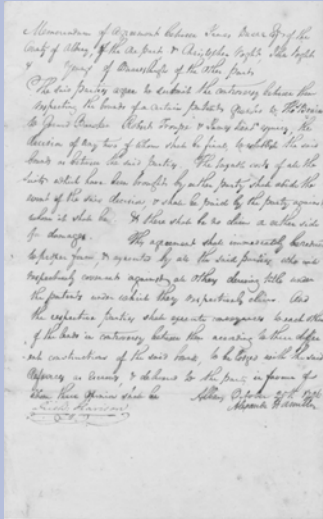 Memorandum of Agreement between James Duane Esqr of the
County of Albany, of the one part & Christopher
& Young of Duanesburgh of the other part
The said parties agree to submit the controversy between them
respecting the bounds of a certain patent granted to Thos
to Gerard Bancker Robert Troup & James Kent esquires, the
decision of any two of whom shall be final, to establish the said
bounds as between the said parties. The taxable costs of all the
suits which have been brought by either party shall abide the
event of the said decision, & shall be paid by the party against
whom it shall be & there shall be no claim on either side
for damages. This agreement shall immediately be reduced
to proper form & executed by all the said parties, who will
respectively covenant against all others deriving title under
the patents under which they respectively claim. And
the respective parties shall execute conveyances to each other
of the lands in controversy between them according to these differ
ent constructions of the said bounds, to be lodged with the said
& delivered to the party in favour of
whom their opinion shall be Albany October 27th
Harison Alexander Hamilton